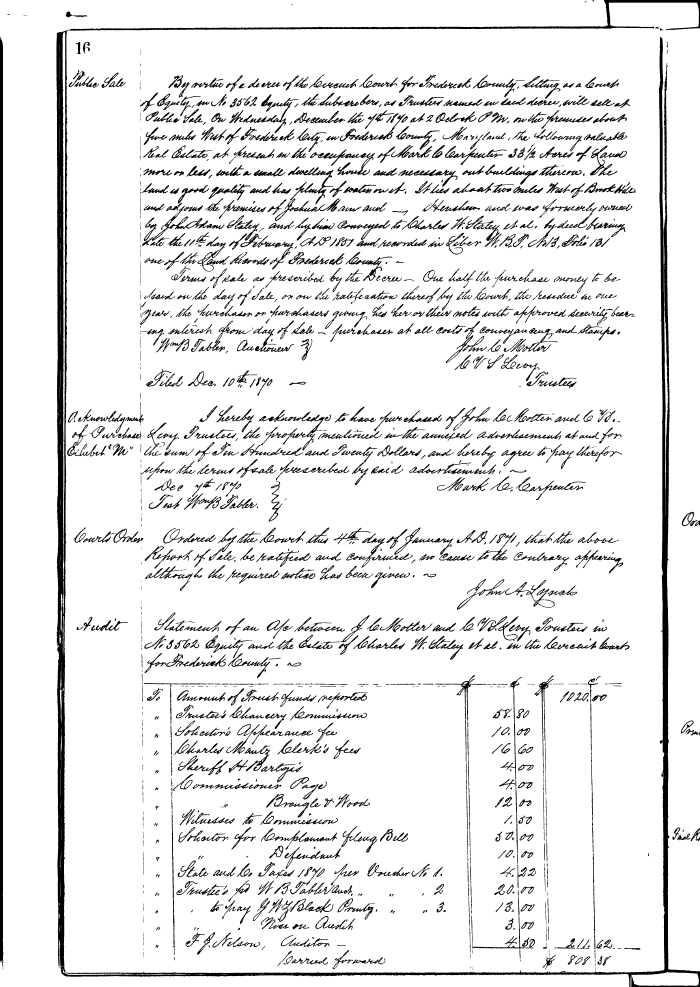 16
Public Sale
By virtue of a decree of the Circuit Court for Frederick County, Sitting as a Court
of Equity, in No 3562 Equity, the subscribers, as Trustees named in said decree, will sell at
Public Sale, On Wednesday, December the 7th 1870 at 2 Oclock P.M. on the premises about
five miles West of Frederick City, in Frederick County, Maryland, the following valuable
Real Estate, at present in the occupancy of Mark C Carpenter 33 1/2 Acres of Land
more or less, with a small dwelling house and necessary out buildings thereon. The
land is good quality and has plenty of water on it. It lies about two miles West of
and adjoins the premises of Joshua Main and — Henshew and was formerly owned
by John Adam Staley, and by him conveyed to Charles W. Staley et al. by deed bearing
date the 11th day of February, A.D. 1851 and recorded in Liber W.B.T. No 13, folio 131
one of the Land Records of Frederick County. —
Terms of sale as prescribed by the Decree — One half the purchase money to be
paid on the day of Sale, or on the ratification thereof by the Court, the residue in one
year, the purchaser or purchasers giving his her or their notes with approved security bear-
ing interest from day of sale — purchaser at all costs of conveyancing and stamps.
Wm B Tabler, Auctioneer
John C Motter
C V S Levy.
Trustees
Filed Dec. 10th 1870 ~
Acknowledgment
of Purchase
Exhibit "M"
I hereby acknowledge to have purchased of John C Motter and C V S.
Levy Trustees, the property mentioned in the annexed advertisement, at and for
the sum of Ten Hundred and Twenty Dollars, and hereby agree to pay therefor
upon the terms of sale prescribed by said advertisement. ~
Dec 7th 1870
Mark C. Carpenter
Test Wm B Tabler.
Courts Order
Ordered by the Court this 4th day of January A.D. 1871, that the above
Report of Sale, be ratified and confirmed, no cause to the contrary appearing
although the required notice has been given. ~
John A. Lynch
Audit
Statement of an A/c between J C Motter and C V S Levy Trustees in
No 3562 Equity and the Estate of Charles W. Staley et al. in the Circuit Court
for Frederick County. ~
$ ¢ $ ¢
To Amount of Trust funds reported 1020.00
" Trustee's Chancery Commission 58.80
" Solicitor's Appearance fee 10.00
" Charles Mantz Clerk's fees 16 60
" Sheriff H Bartgis 4.00
" Commissioner Page 4.00
" " Brengle & Wood 12 00
" Witnesses to Commission 1.50
" Solicitor for Complainant filing Bill 50.00
" " Defendant 10.00
" State and Co Taxes 1870 per Voucher No 1. 4.22
" Trustee's pd W B Tabler Auct. " " 2 20.00
" " to pay Printg. " " 3. 13.00
" " Nisi on Audit 3.00
" F J Nelson, Auditor — 4.50 211.62
Carried forward $ 808 38